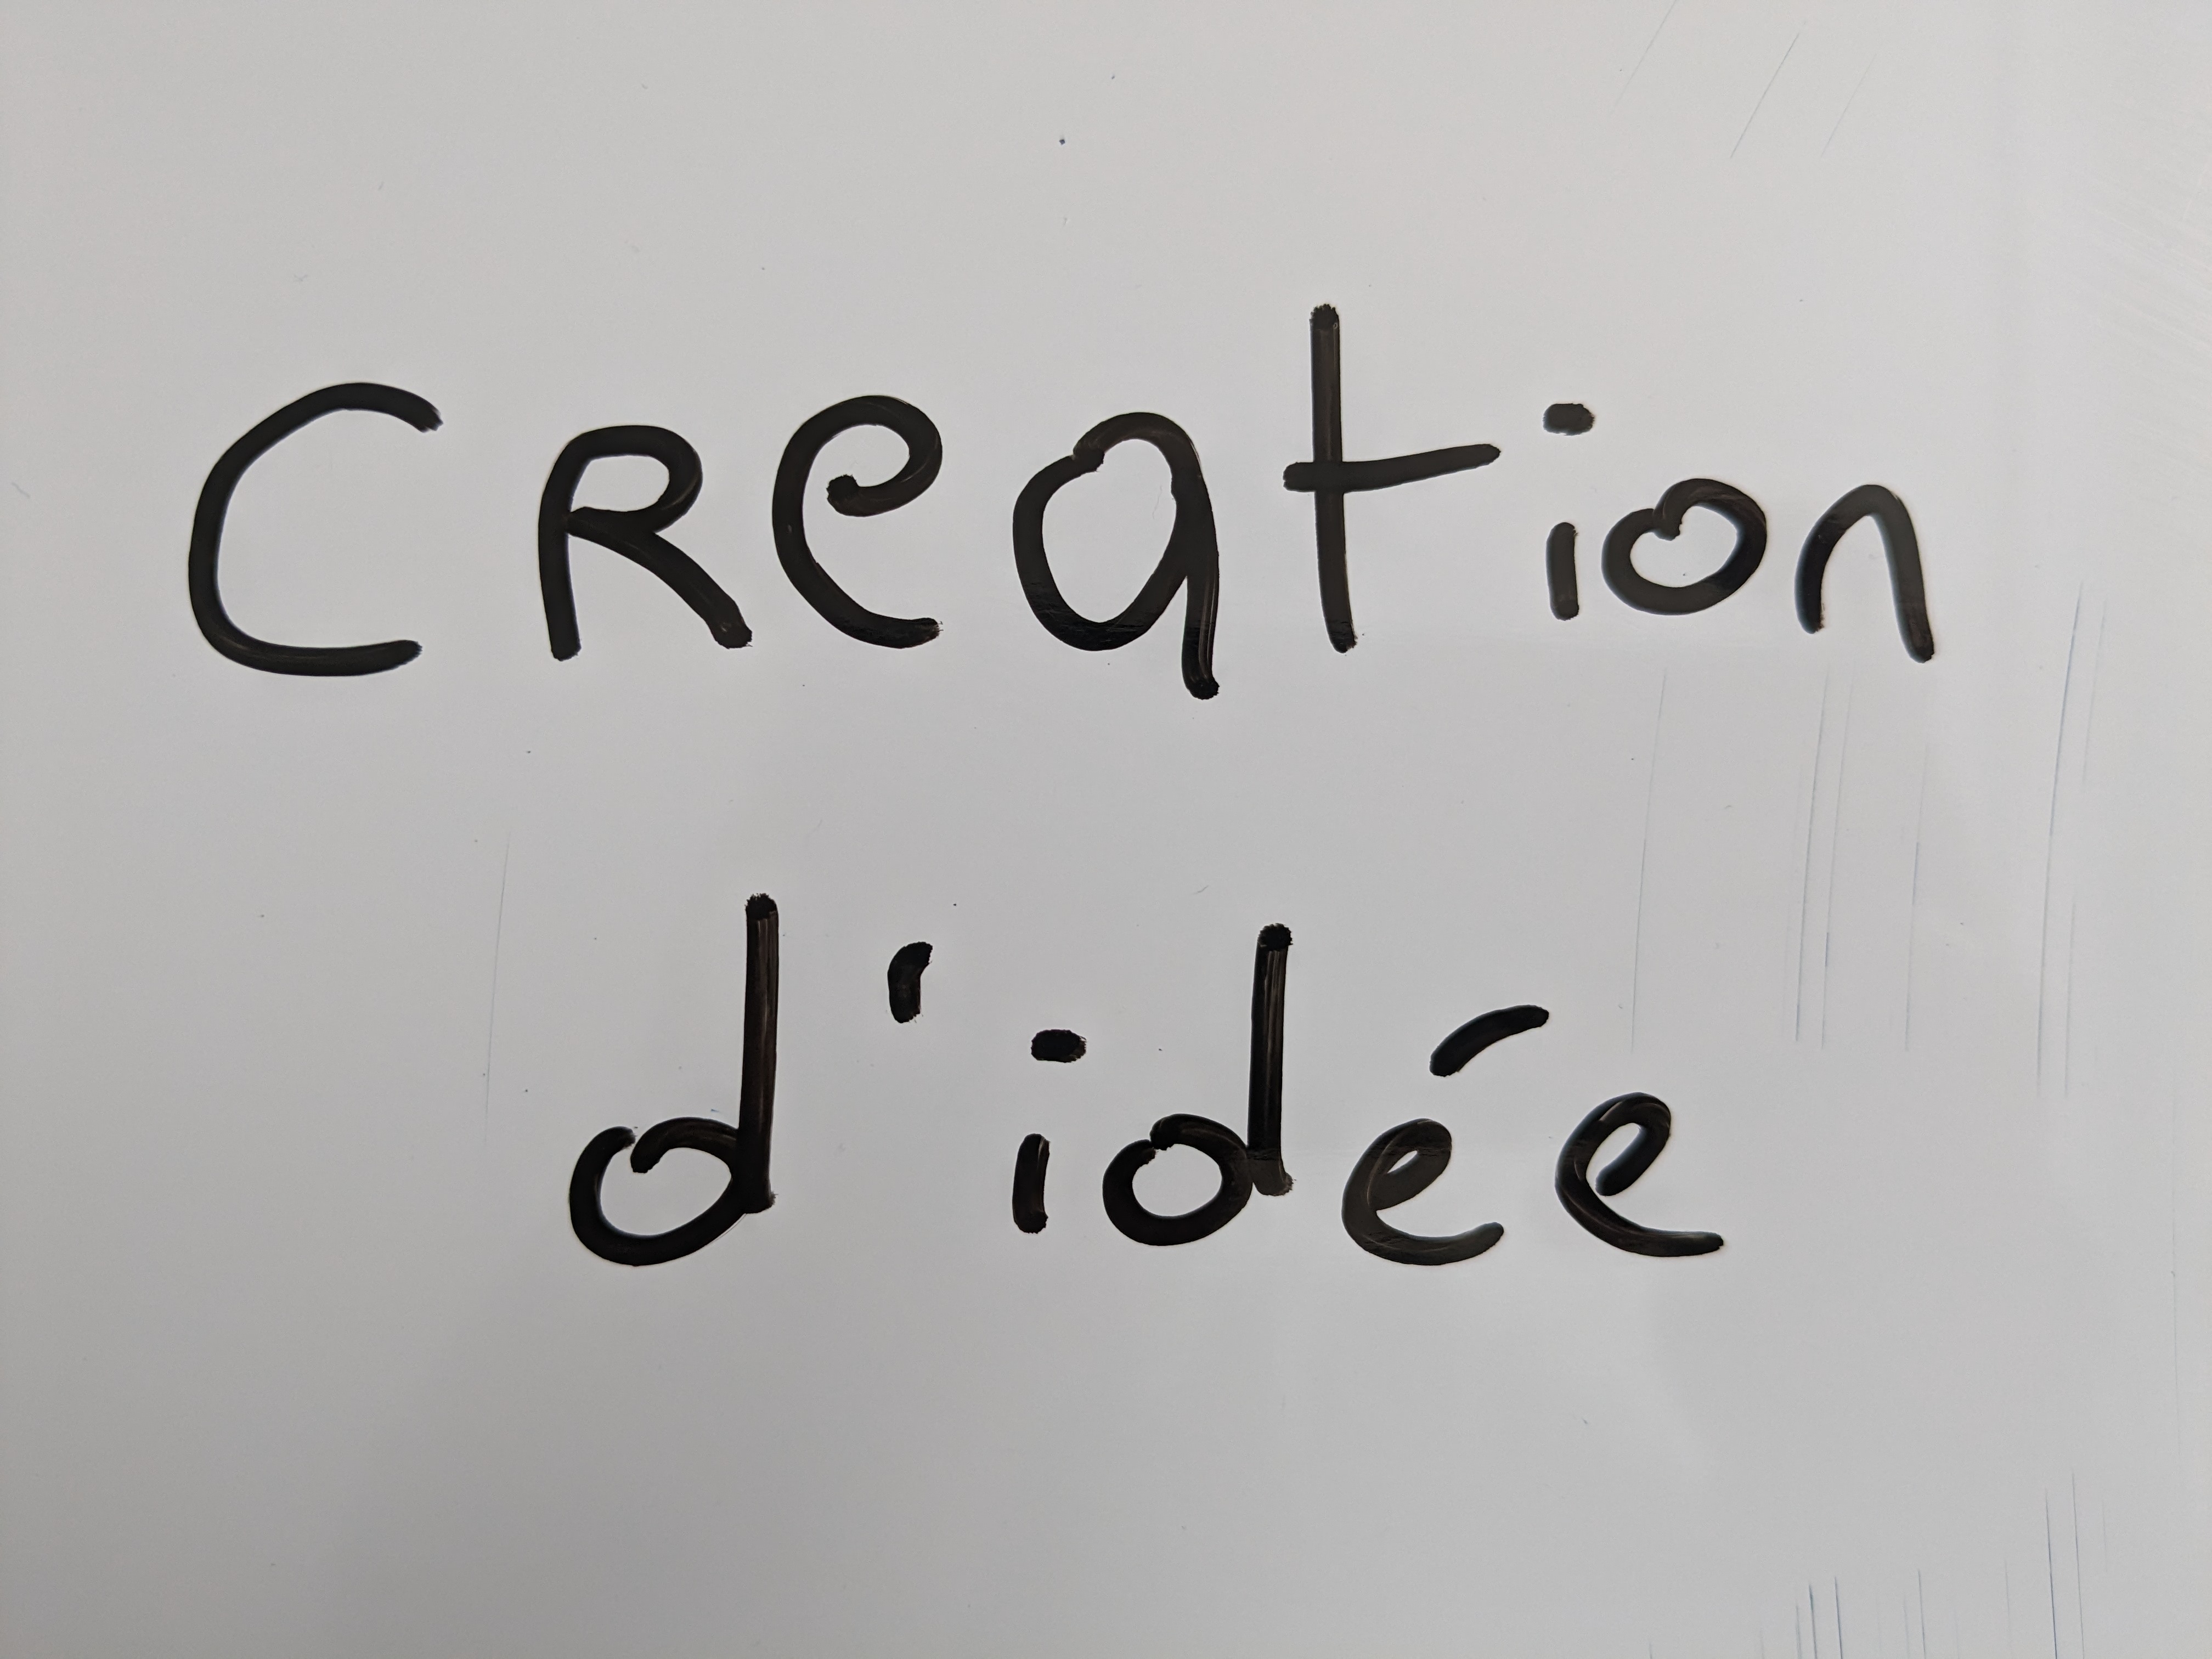 Creation
d'idée